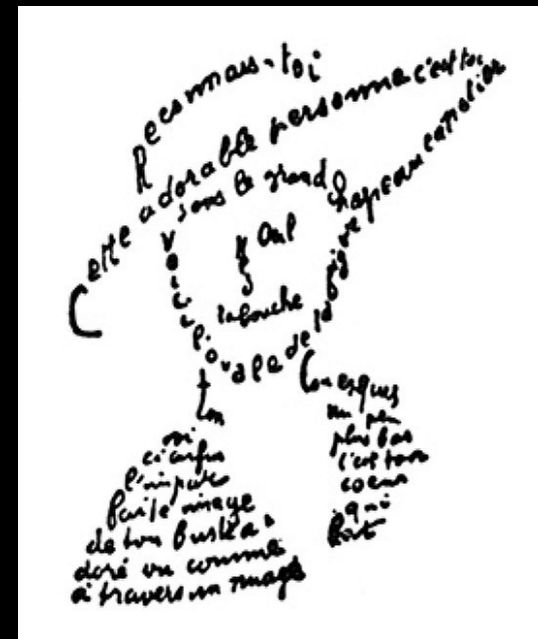 Reconnais-toi
Cette adorable personne c'est toi
sous le grand chapeau canotier
Œil
Nez
la bouche
Voici l'ovale de ta figure
ton
Cou exquis
Voi
ci enfin
l'impar
faite image
de ton buste a
doré vu comme
à travers un nuage
un peu
plus bas
c'est ton
coeur
qui
bat